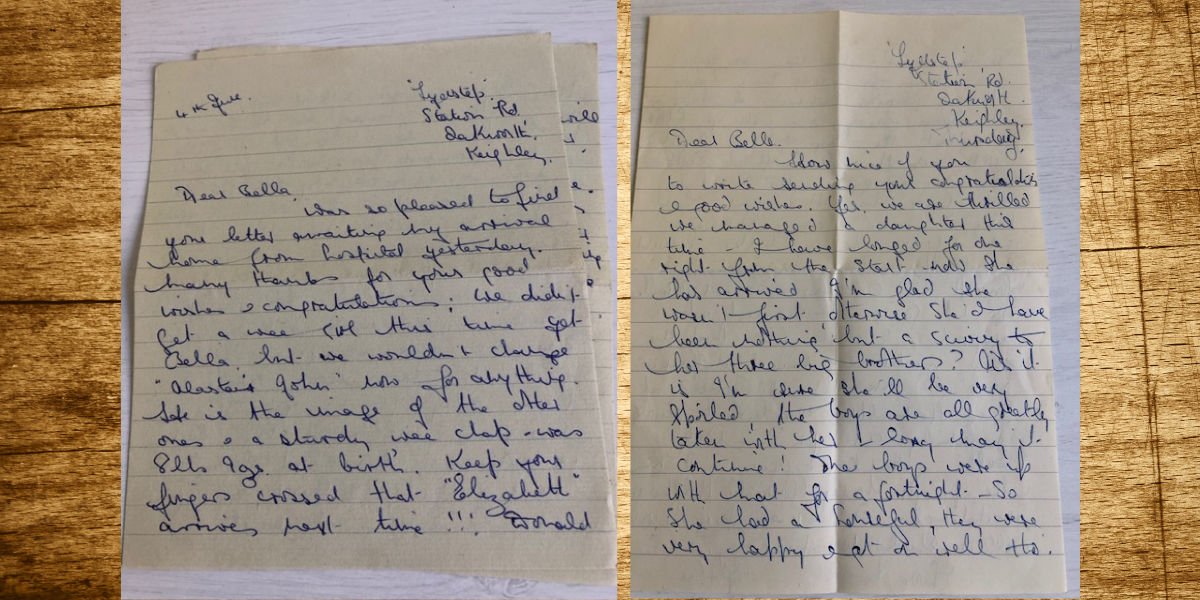 4th June.
"Lydstep"
Station Rd.
Oakworth.
Keighley.
Dear Bella,
Was so pleased to find
your letter awaiting my arrival
home from hospital yesterday.
Many thanks for your good
wishes & congratulations. We didn't
get a wee girl this time yet
Bella, but we wouldn't change
"Alastair John" now for anything.
He is the image of the other
ones & a sturdy wee chap - was
8lbs 9ozs at birth. Keep your
fingers crossed that "Elizabeth"
arrives next time!!! Donald
"Lydstep"
Station Rd.
Oakworth.
Keighley.
Thursday.
Dear Bella.
How nice of you
to write sending your congratulations
& good wishes. Yes, we are thrilled
we managed a daughter this
time - I have longed for one
right from the start - now she
has arrived I'm glad she
wasn't first otherwise she'd have
been nothing but a skivvy to
her three big brothers! As it
is I'm sure she'll be very
spoiled, the boys are all greatly
taken with her & long may it
continue! The boys were up
with mat for a fortnight - so
she had a handful, they were
very happy & got on well tho'.